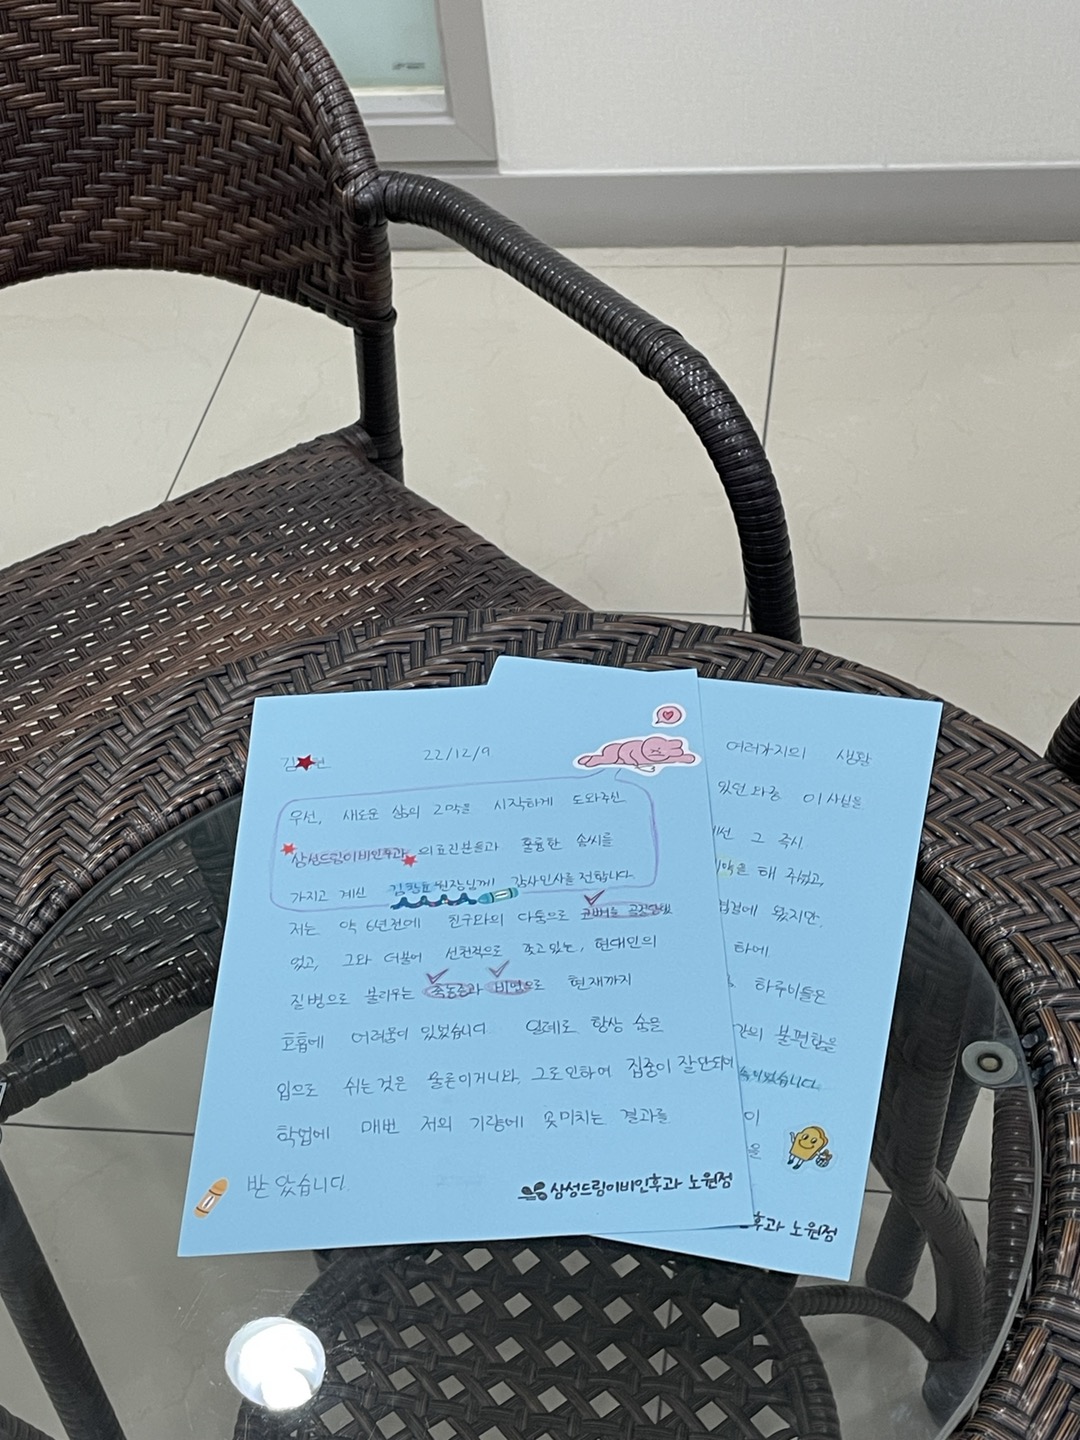 22/12/9
우선, 새로운 삶의 2막을 시작하게 도와주신
삼성드림이비인후과 의료진분들과 훌륭한 솜씨를
가지고 계신 원장님께 감사인사를 전합니다.
저는 약 6년전에 친구와의 다툼으로 코뼈를
었고, 그와 더불어 선천적으로 갖고있는, 현대인의
질병으로 불리우는 축농증과 비염으로 현재까지
호흡에 어려움이 있었습니다. 일례로 항상 숨을
입으로 쉬는것은 물론이거니와, 그로인하여 집중이 잘안되어
학업에 매번 저의 기량에 못미치는 결과를
받았습니다.
삼성드림이비인후과 노원점
여러가지의 생활
있던 와중 이사님을
그 즉시
해 주셨고,
겁결에 왔지만,
하에
하루이틀은
간의 불편함을
이
을
후과 노원점